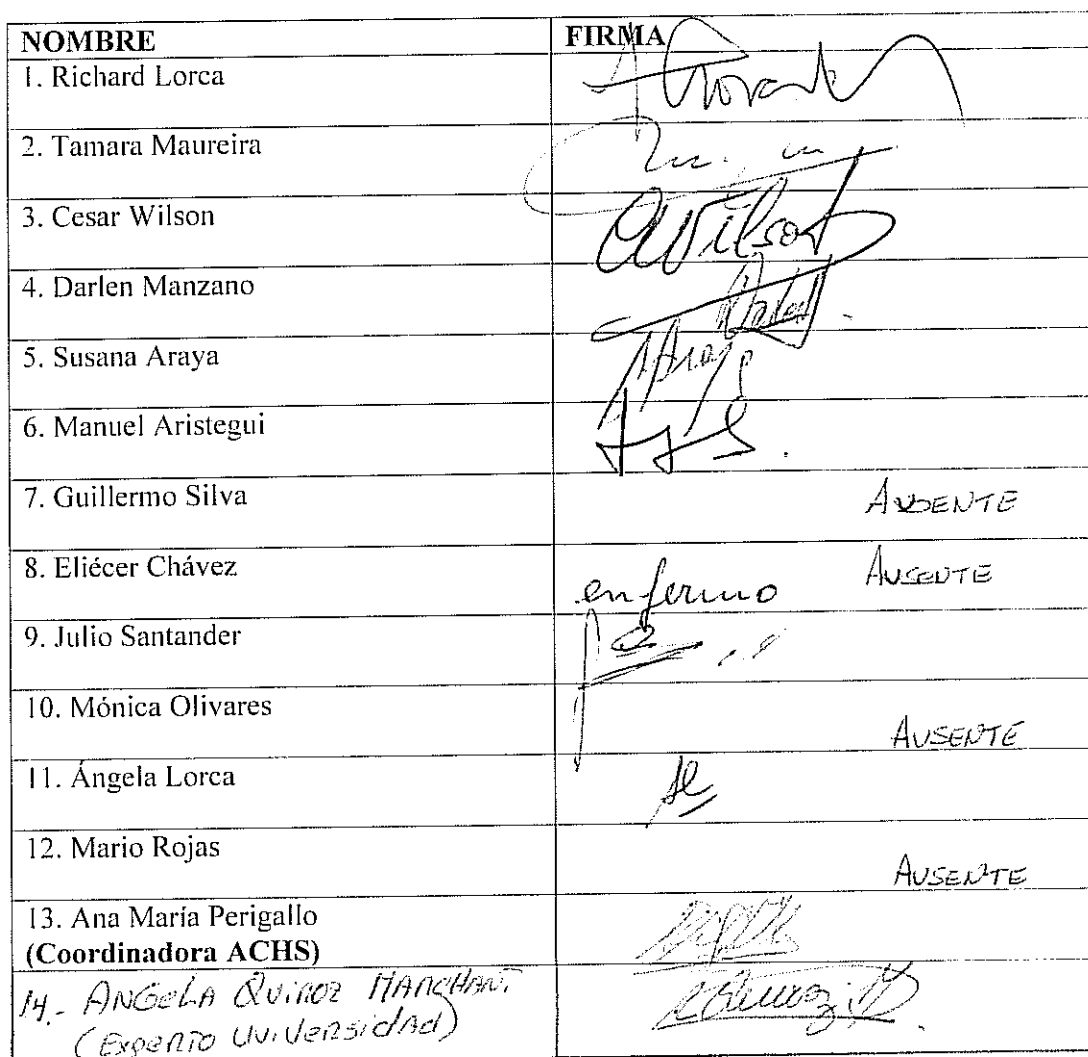 NOMBRE FIRMA
1. Richard Lorca
2. Tamara Maureira
3. Cesar Wilson CWilson
4. Darlen Manzano
5. Susana Araya
6. Manuel Aristegui
7. Guillermo Silva AUSENTE
8. Eliécer Chávez enfermo AUSENTE
9. Julio Santander
10. Mónica Olivares AUSENTE
11. Ángela Lorca
12. Mario Rojas AUSENTE
13. Ana María Perigallo
(Coordinadora ACHS)
14.- ANGELA QUIROZ MARCHANT.
(Experto Universidad)